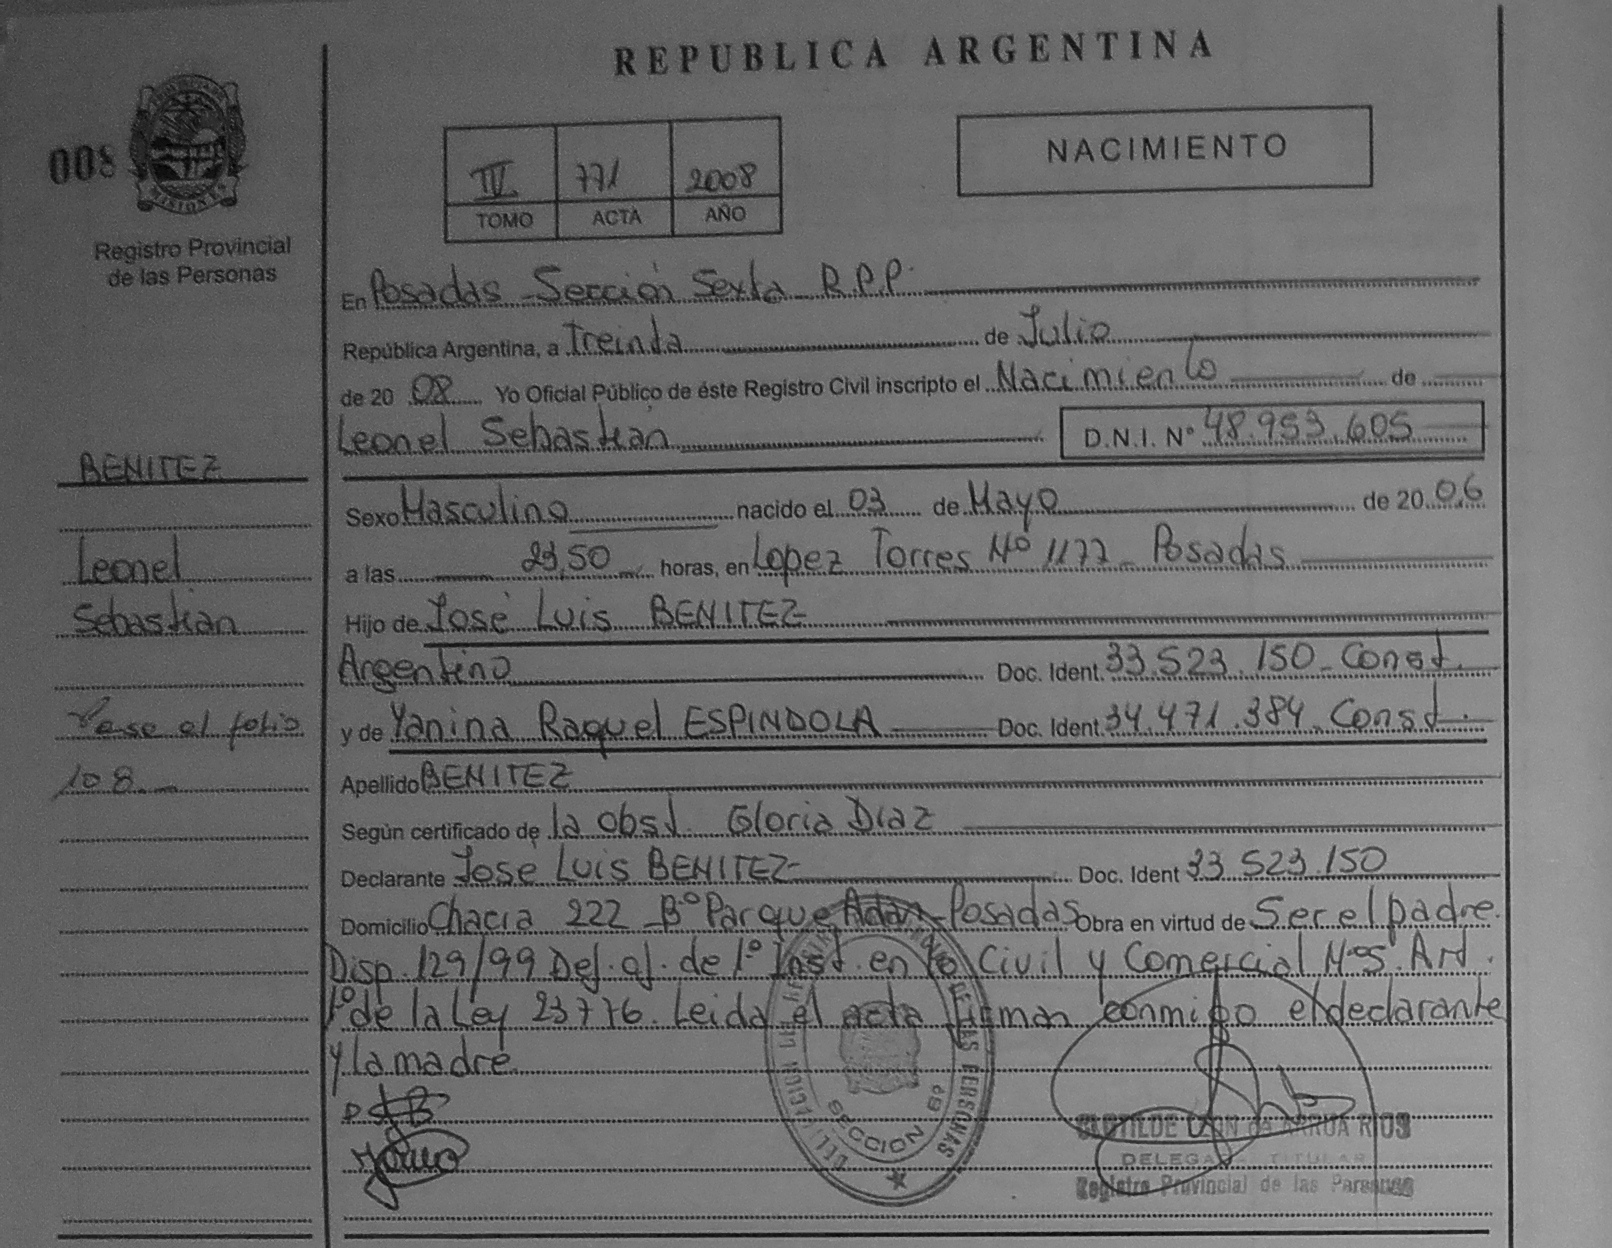 REPUBLICA ARGENTINA
008
MISIONES
Registro Provincial
de las Personas
IV 771 2008
TOMO ACTA AÑO
NACIMIENTO
En Posadas - Sección Sexta R.P.P.
República Argentina, a Treinta de Julio
de 20 08 Yo Oficial Público de éste Registro Civil inscripto el Nacimiento de
Leonel Sebastián D.N.I. Nº 48.953.605
BENITEZ
Leonel
Sebastián
Vease al folio
108
Sexo Masculino nacido el 03 de Mayo de 20 06
a las 23,50 horas, en Lopez Torres Nº 1177 - Posadas
Hijo de José Luis BENITEZ
Argentino Doc. Ident. 33.523.150 - Const.
y de Yanina Raquel ESPINDOLA Doc. Ident. 34.471.384. Const.
Apellido BENITEZ
Según certificado de la obst. Gloria Diaz
Declarante Jose Luis BENITEZ Doc. Ident 33.523.150
Domicilio Chacra 222 - Bº Parque Adan - Posadas Obra en virtud de Ser el padre.
Disp. 129/99 Def. of. de 1º Inst. en lo Civil y Comercial Nº5. Art.
1º de la Ley 23776. Leida el acta firman conmigo el declarante
y la madre
DE LAS PERSONAS
SECCION 6ª
CLOTILDE de ARRUA RIOS
DELEGADA TITULAR
Registro Provincial de las Personas